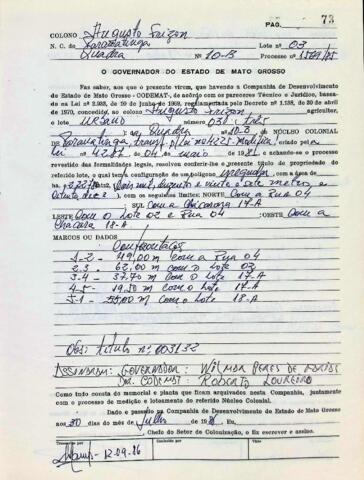 PAG. 73
COLONO Augusto Frizon
N. C. de Paranatinga Lote nº 03
Quadra Nº 10-B Processo nº 1569/85
O GOVERNADOR DO ESTADO DE MATO GROSSO
Faz saber, aos que o presente virem, que havendo a Companhia de Desenvolvimento
do Estado de Mato Grosso - CODEMAT, de acôrdo com os pareceres Técnico e Jurídico, baseada
na Lei nº 2.983, de 19 de junho de 1969, regulamentada pelo Decreto nº 1.138, de 30 de abril
de 1970, concedido, ao colono Augusto Frizon agricultor,
lote URBANO número 03 (três
da Quadra 10-B do NÚCLEO COLONIAL
de Paranatinga criado pela
Lei nº 4277 de 04 de maio 1981, e achando-se o processo
revestido das formalidades legais, resolveu conferir-lhe o presente título de propriedade do
referido lote, o qual tem a configuração de um polígono irregular com a área de
com os seguintes limites: NORTE Com a Rua 04
SUL com a chácara 17-A
LESTE Com o Lote 02 e Rua 04 OESTE Com a
chácara 18-A
MARCOS OU DADOS
Confrontações
1-2 - 49,00 m com a Rua 04
2-3 - 62,00 m com o Lote 02
3-4 - 37,70 m com o Lote 17-A
4-5 - 19,50 m com o Lote 17-A
5-1 - 55,00 m com o Lote 18-A
Obs: título nº 003132
ASSINARAM: GOVERNADOR: WILMAR PERES DE FARIAS
DIR. CODEMAT: ROBERTO LOUREIRO
Como tudo consta do memorial e planta que ficam arquivados nesta Companhia, juntamente
com o processo de medição e loteamento do referido Núcleo Colonial.
Dado e passado na Companhia de Desenvolvimento do Estado de Mato Grosso
aos 30 dias do mês de Julho de 1986 Eu,
Chefe do Setor de Colonização, o Escrevo e assino.
12.09.86